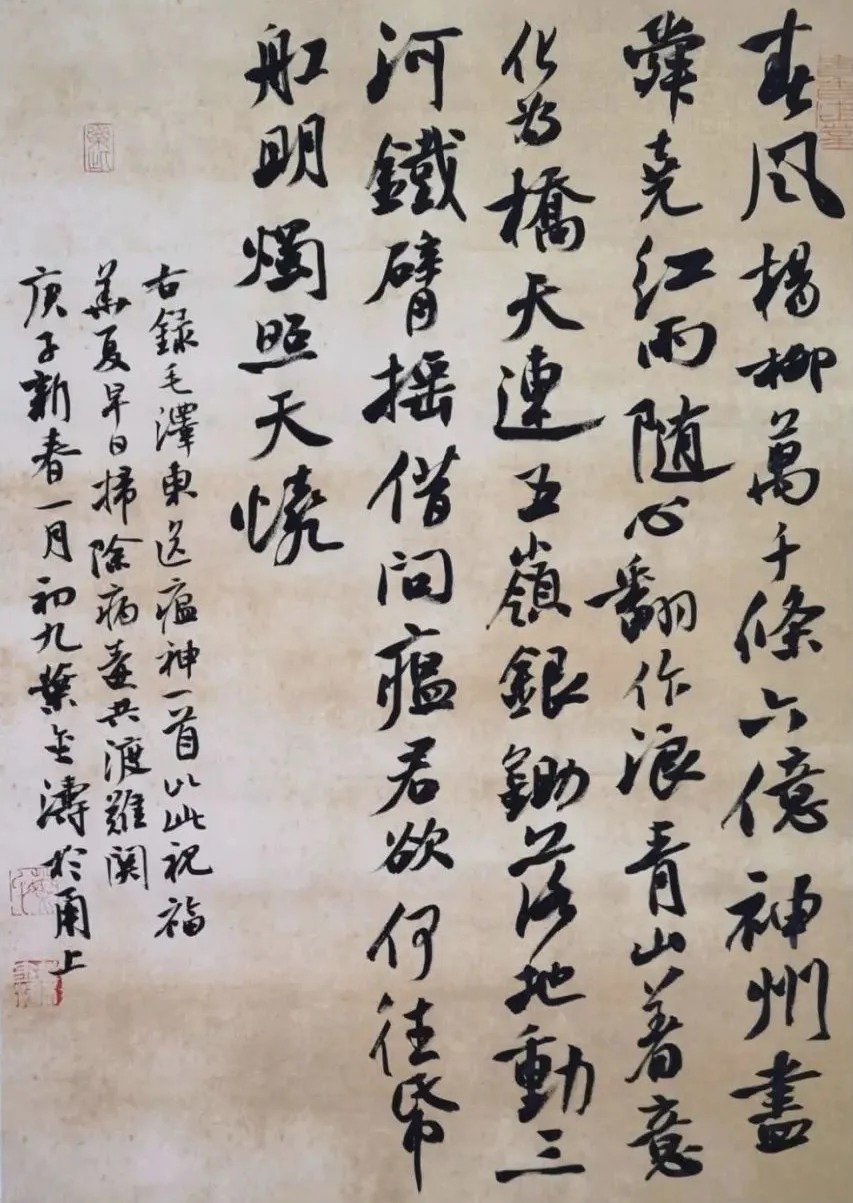 春风楊柳萬千條六億神州盡
舜堯红雨随心翻作浪青山着意
化为橋天連五嶺銀鋤落地動三
河鐵臂摇借问瘟君欲何往帋
船明燭照天燒
右録毛澤東送瘟神一首以此祝福
華夏早日掃除病毒共渡難関
庚子新春一月初九葉金濤於甬上